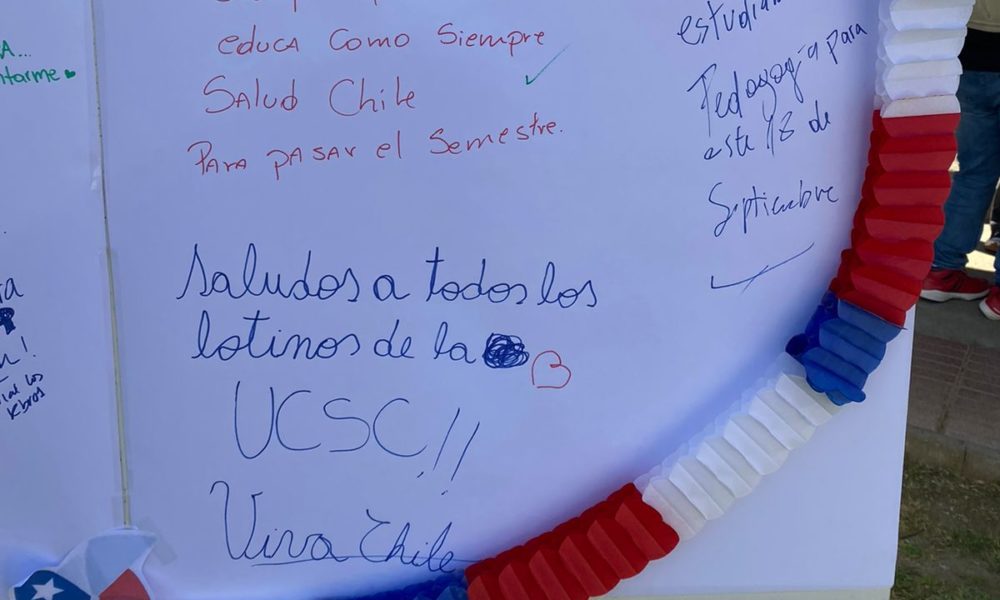 A...
educa como siempre
Salud Chile
Para pasar el Semestre.
Saludos a todos los
latinos de la
UCSC!!
Viva Chile
Pedagogía para
este 18 de
Septiembre